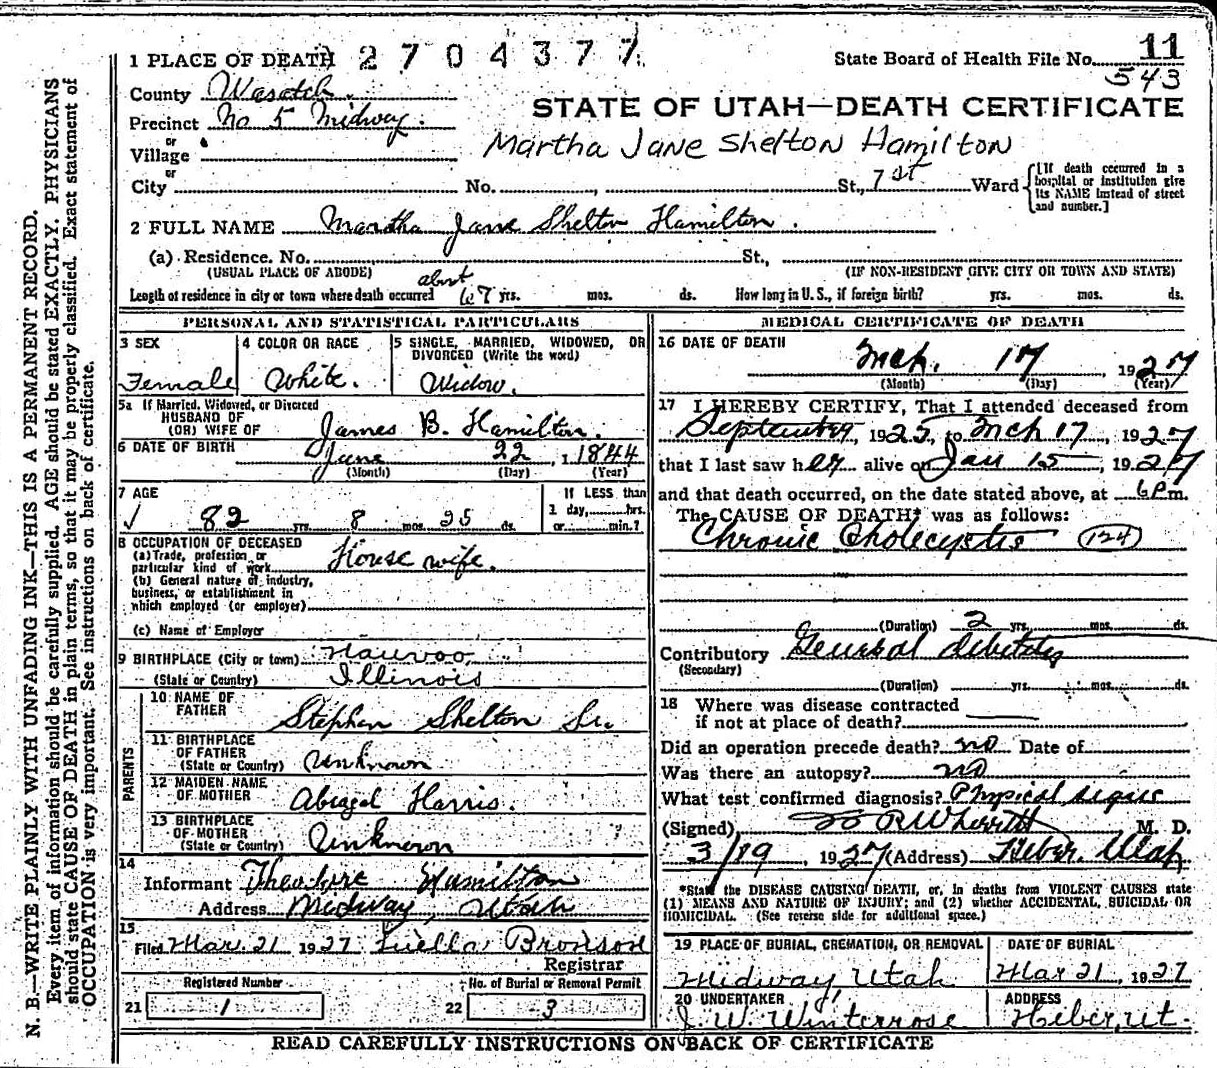 1 PLACE OF DEATH 2704377
State Board of Health File No. 11
543
County Wasatch.
Precinct No 5 Midway.
STATE OF UTAH—DEATH CERTIFICATE
or
Village
Martha Jane Shelton Hamilton
or
City No. , St., 7 st Ward
[If death occurred in a hospital or institution give its NAME instead of street and number.]
2 FULL NAME Martha Jane Shelton Hamilton.
(a) Residence. No. St.,
(USUAL PLACE OF ABODE) (IF NON-RESIDENT GIVE CITY OR TOWN AND STATE)
about
Length of residence in city or town where death occurred 67 yrs. mos. ds. How long in U. S., if foreign birth? yrs. mos. ds.
PERSONAL AND STATISTICAL PARTICULARS
3 SEX
Female
4 COLOR OR RACE
White.
5 SINGLE, MARRIED, WIDOWED, OR
DIVORCED (Write the word)
Widow.
5a If Married, Widowed, or Divorced
HUSBAND OF
(OR) WIFE OF James B. Hamilton.
6 DATE OF BIRTH June 22, 1844
(Month) (Day) (Year)
7 AGE
82 yrs. 8 mos. 25 ds.
If LESS than
1 day, hrs.
or min.?
8 OCCUPATION OF DECEASED
(a) Trade, profession, or
particular kind of work House wife.
(b) General nature of industry,
business, or establishment in
which employed (or employer)
(c) Name of Employer
9 BIRTHPLACE (City or town) Nauvoo,
(State or Country) Illinois
PARENTS
10 NAME OF
FATHER Stephen Shelton Sr.
11 BIRTHPLACE
OF FATHER
(State or Country) Unknown
12 MAIDEN NAME
OF MOTHER Abigal Harris.
13 BIRTHPLACE
OF MOTHER
(State or Country) Unknown
14
Informant Theodore Hamilton
Address Midway, Utah
15
Filed Mar. 21 1927 Luella Bronson
Registrar
Registered Number
21 1
No. of Burial or Removal Permit
22 3
MEDICAL CERTIFICATE OF DEATH
16 DATE OF DEATH
Mch. 17 1927
(Month) (Day) (Year)
17 I HEREBY CERTIFY, That I attended deceased from
September, 1925, to Mch 17, 1927
that I last saw her alive on Jan 15, 1927
and that death occurred, on the date stated above, at 6 Pm.
The CAUSE OF DEATH* was as follows:
Chronic Cholecystis (124)
(Duration) 2 yrs. mos. ds.
Contributory General debility
(Secondary)
(Duration) yrs. mos. ds.
18 Where was disease contracted
if not at place of death?
Did an operation precede death? no Date of
Was there an autopsy? no
What test confirmed diagnosis? Physical signs
(Signed) R Wherritt M. D.
3/19, 1927 (Address) Heber, Utah
*State the DISEASE CAUSING DEATH, or, in deaths from VIOLENT CAUSES state
(1) MEANS AND NATURE OF INJURY; and (2) whether ACCIDENTAL, SUICIDAL OR
HOMICIDAL. (See reverse side for additional space.)
19 PLACE OF BURIAL, CREMATION, OR REMOVAL
Midway, Utah
DATE OF BURIAL
Mar 21, 1927
20 UNDERTAKER
J. W. Winterrose
ADDRESS
Heber, Ut.
READ CAREFULLY INSTRUCTIONS ON BACK OF CERTIFICATE
N. B.—WRITE PLAINLY WITH UNFADING INK—THIS IS A PERMANENT RECORD.
Every item of information should be carefully supplied. AGE should be stated EXACTLY. PHYSICIANS
should state CAUSE OF DEATH in plain terms, so that it may be properly classified. Exact statement of
OCCUPATION is very important. See instructions on back of certificate.